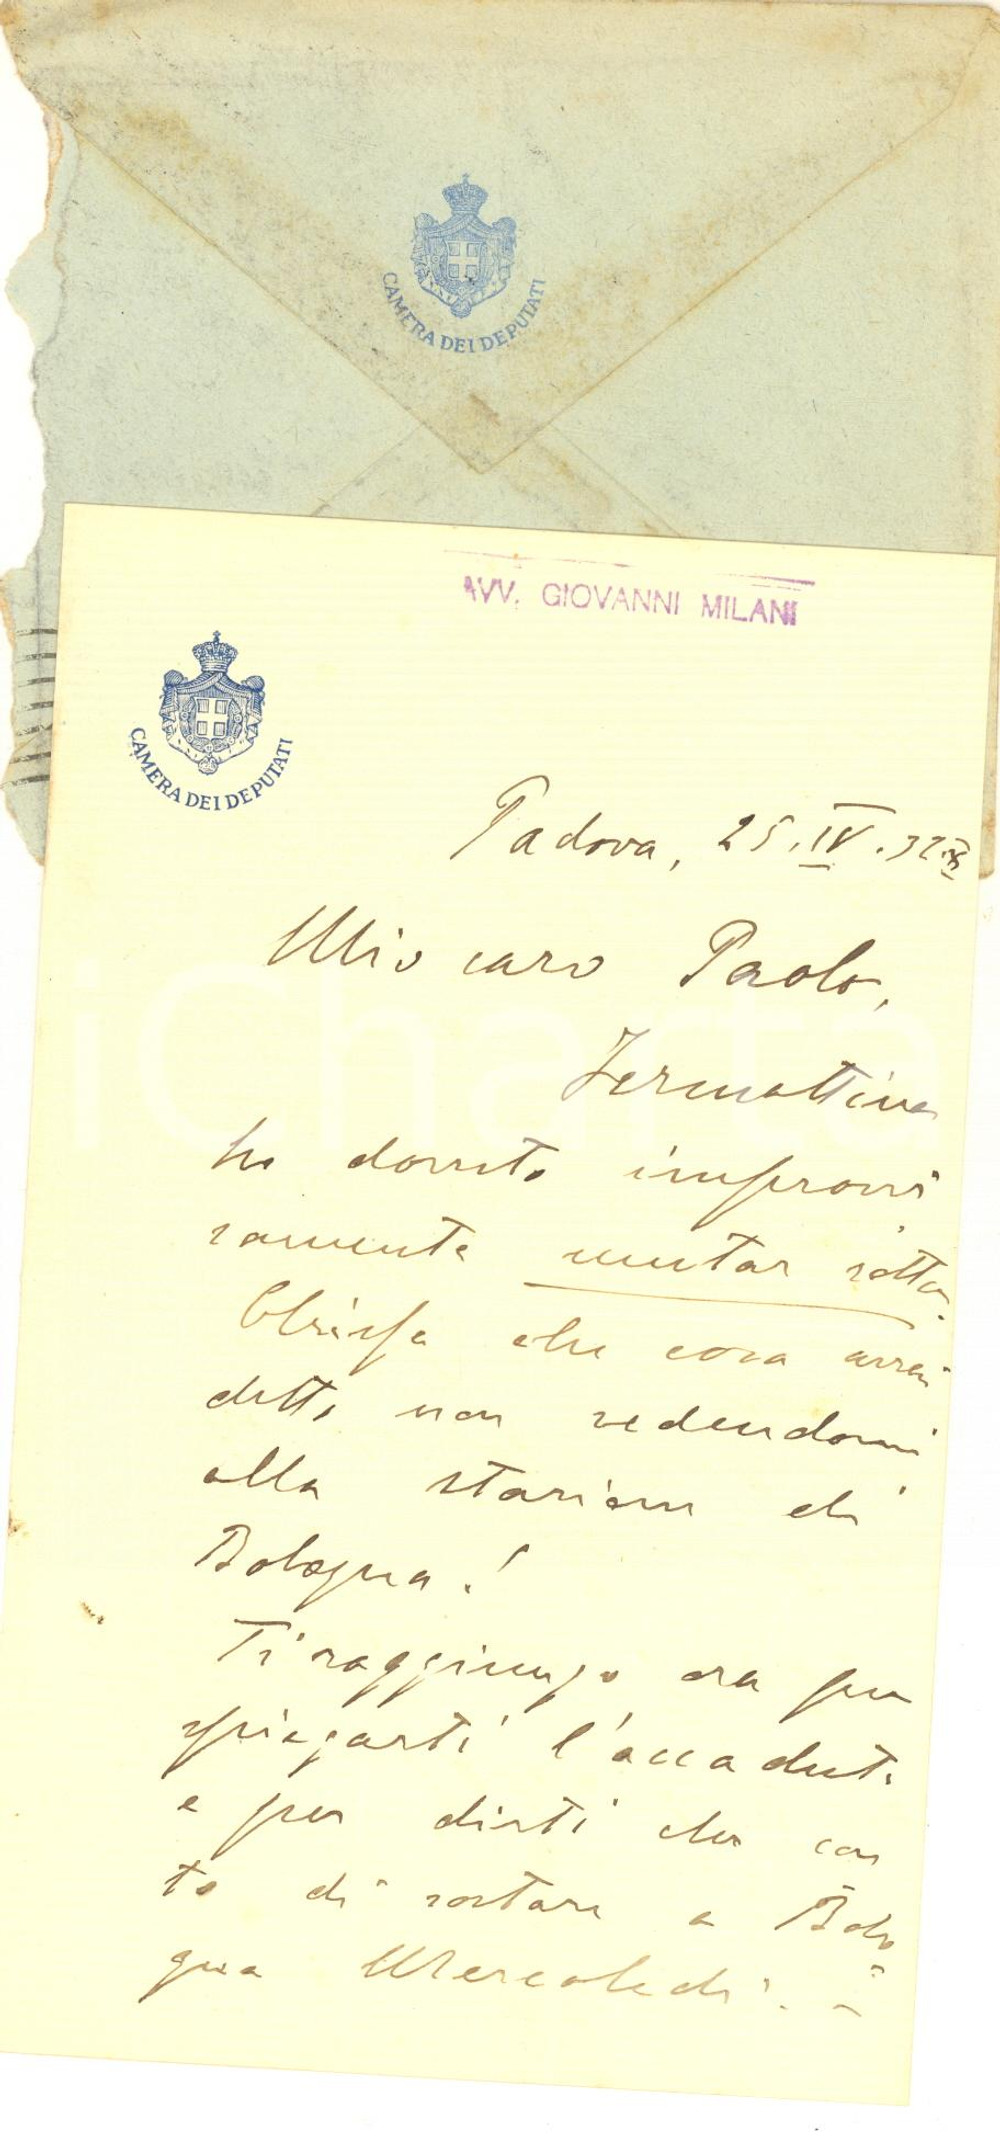 CAMERA DEI DEPUTATI
AVV. GIOVANNI MILANI
CAMERA DEI DEPUTATI
Padova, 25.IV.32.X
Mio caro Paolo,
Iermattina
ho dovuto improvvi
samente mutar rotta.
Chissa che cosa avrai
detto non vedendomi
alla stazione di
Bologna!
Ti raggiungo ora per
spiegarti l'accaduto
e per dirti che con
to di sostare a Bolo-
gna Mercoledì. -
iCharta